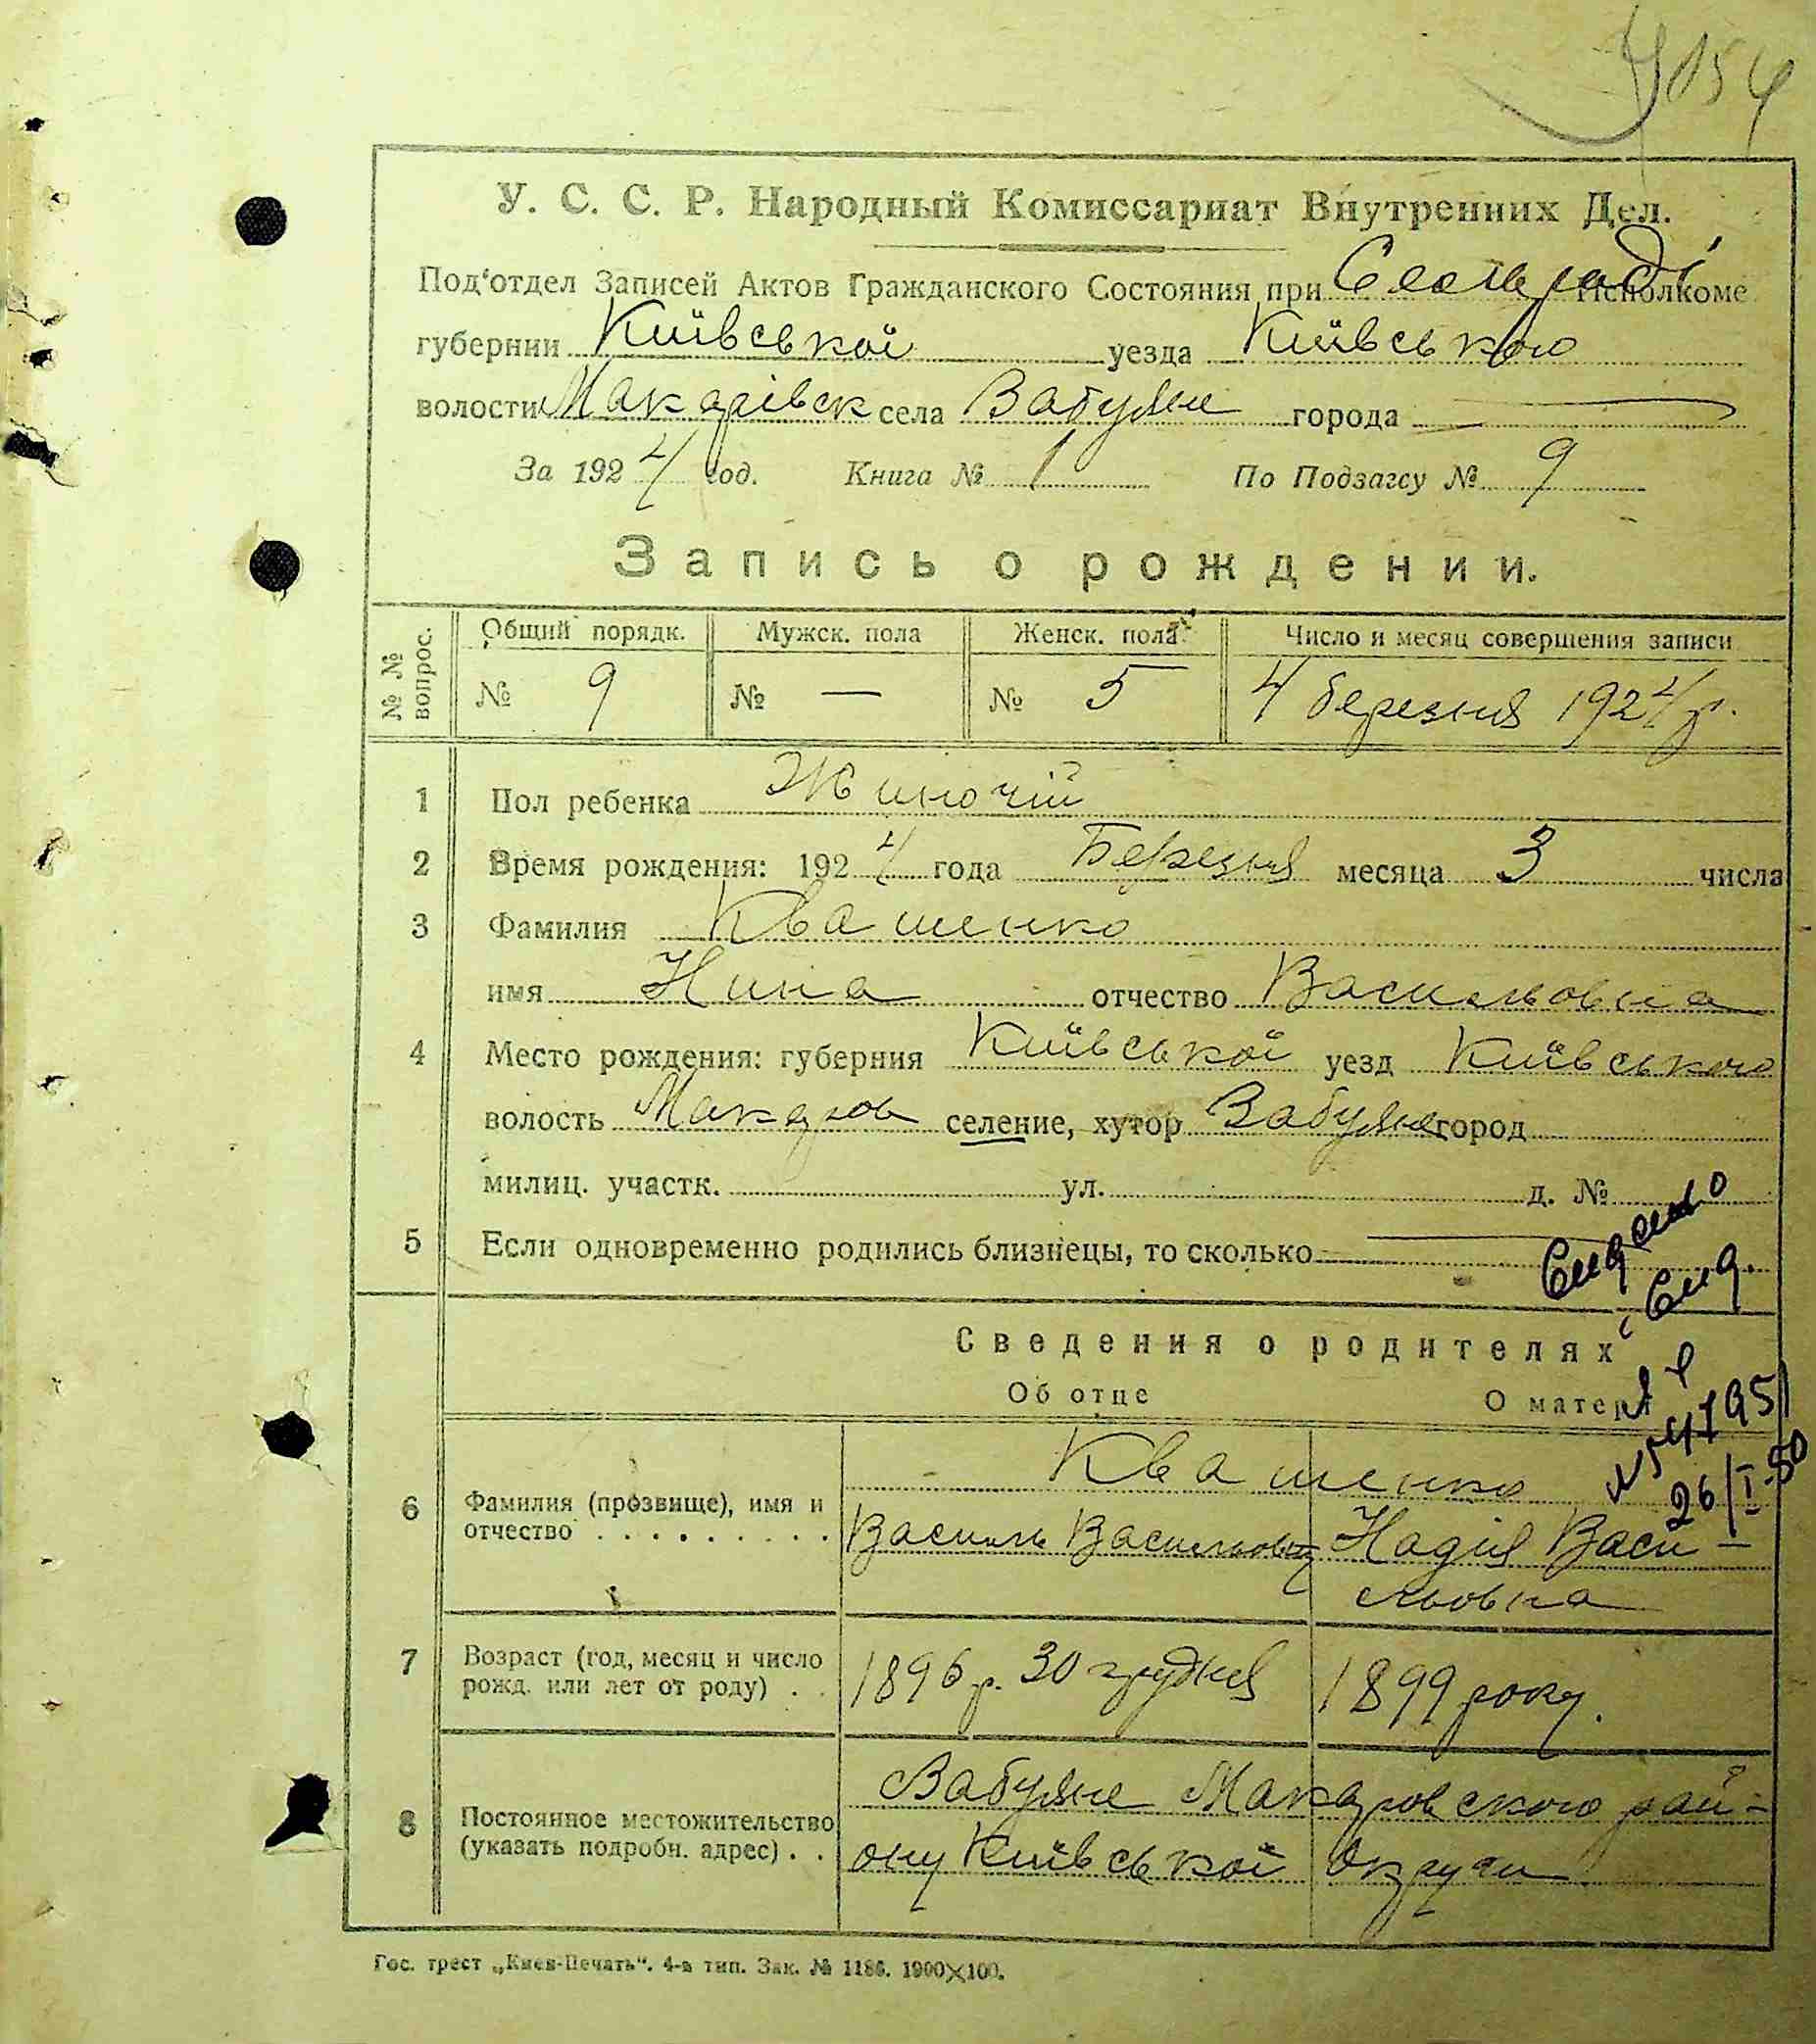 154
У. С. С. Р. Народный Комиссариат Внутренних Дел.
Под'отдел Записей Актов Гражданского Состояния при Сельраді Исполкоме
губернии Київської уезда Київського
волости Макарівськ села Забуяне города
За 1924 год. Книга № 1 По Подзагсу № 9
Запись о рождении.
№ № вопрос. Общий порядк. Мужск. пола Женск. пола Число и месяц совершения записи
№ 9 № — № 5 4 березня 1924 р.
1 Пол ребенка Жиночій
2 Время рождения: 1924 года Березня месяца 3 числа
3 Фамилия Квашенко
имя Нина отчество Васильовна
4 Место рождения: губерния Київської уезд Київського
волость Макаров селение, хутор Забуяне город
милиц. участк. ул. д. №
5 Если одновременно родились близнецы, то сколько
Сведения о родителях
Об отце О матери
№ 547951
26/I-50
Квашенко
6 Фамилия (прозвище), имя и
отчество . . . . . . . . . Василь Васильович Надия Васи-
льовна
7 Возраст (год, месяц и число
рожд. или лет от роду) . . 1896 р. 30 грудня 1899 року.
Забуяне Макаровского рай-
8 Постоянное местожительство
(указать подробн. адрес) . . ону Київської Округи
Гос. трест „Киев-Печать“. 4-я тип. Зак. № 1186. 1900×100.